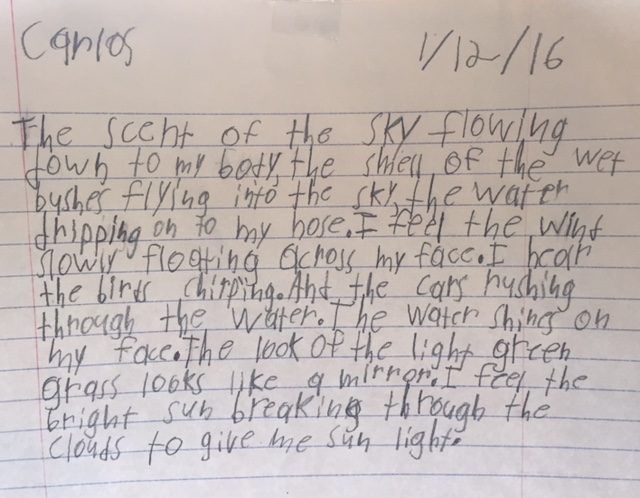 Carlos 1/12/16
The scent of the sky flowing
down to my body, the smell of the wet
bushes flying into the sky, the water
dripping on to my nose. I feel the wind
slowly floating across my face. I hear
the birds chirping. And the cars rushing
through the water. The water shings on
my face. The look of the light green
grass looks like a mirror. I feel the
bright sun breaking through the
clouds to give me sun light.